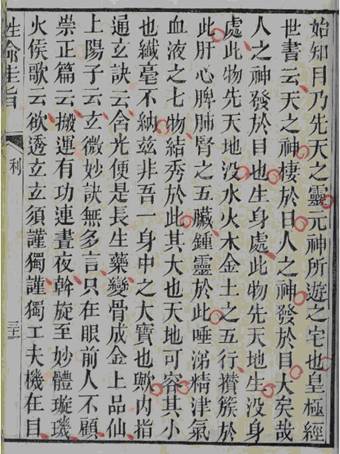 始知目乃先天之靈元神所遊之宅也皇極經
世書云天之神棲於日人之神發於目大矣哉
人之神發於目也生身處此物先天地生沒身
處此物先天地没水火木金土之五行攅簇於
此肝心脾肺腎之五臟鍾靈於此唾涕精津氣
血液之七物結秀於此其大也天地可容其小
也纖毫不納兹非吾一身中之大寶也歟内指
通玄訣云含光便是長生藥變骨成金上品仙
上陽子云玄微妙訣無多言只在眼前人不顧
崇正篇云搬運有功連晝夜斡旋至妙體璇璣
火候歌云欲透玄玄須謹獨謹獨工夫機在目
性命圭旨
利
三十